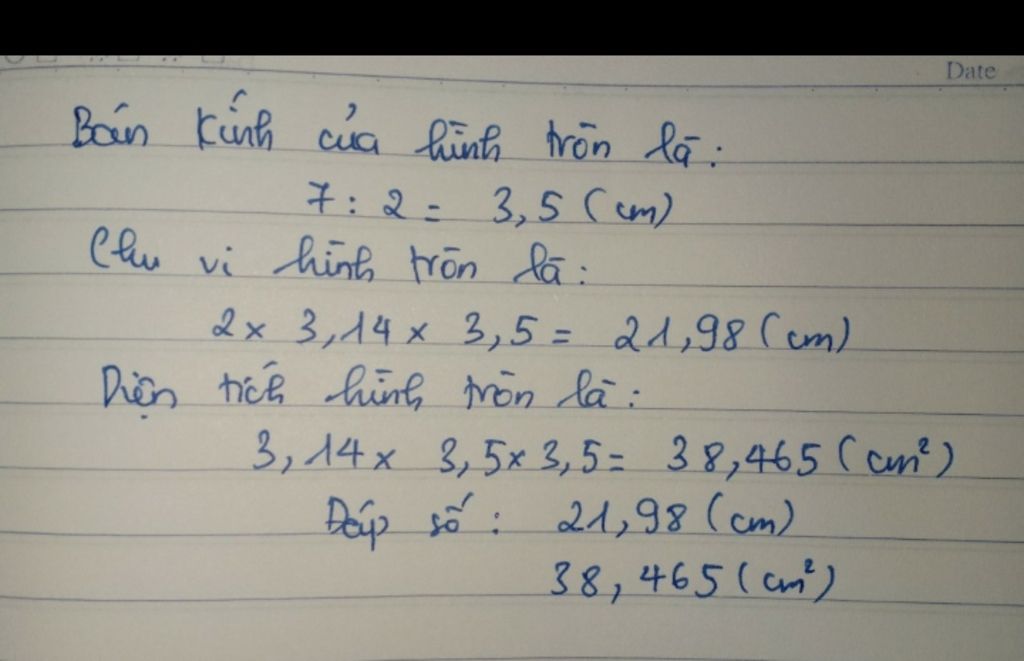 Date
Bán kính của hình tròn là:
7 : 2 = 3,5 (cm)
Chu vi hình tròn là:
2 x 3,14 x 3,5 = 21,98 (cm)
Diện tích hình tròn là:
3,14 x 3,5 x 3,5 = 38,465 (cm²)
Đáp số : 21,98 (cm)
38,465 (cm²)